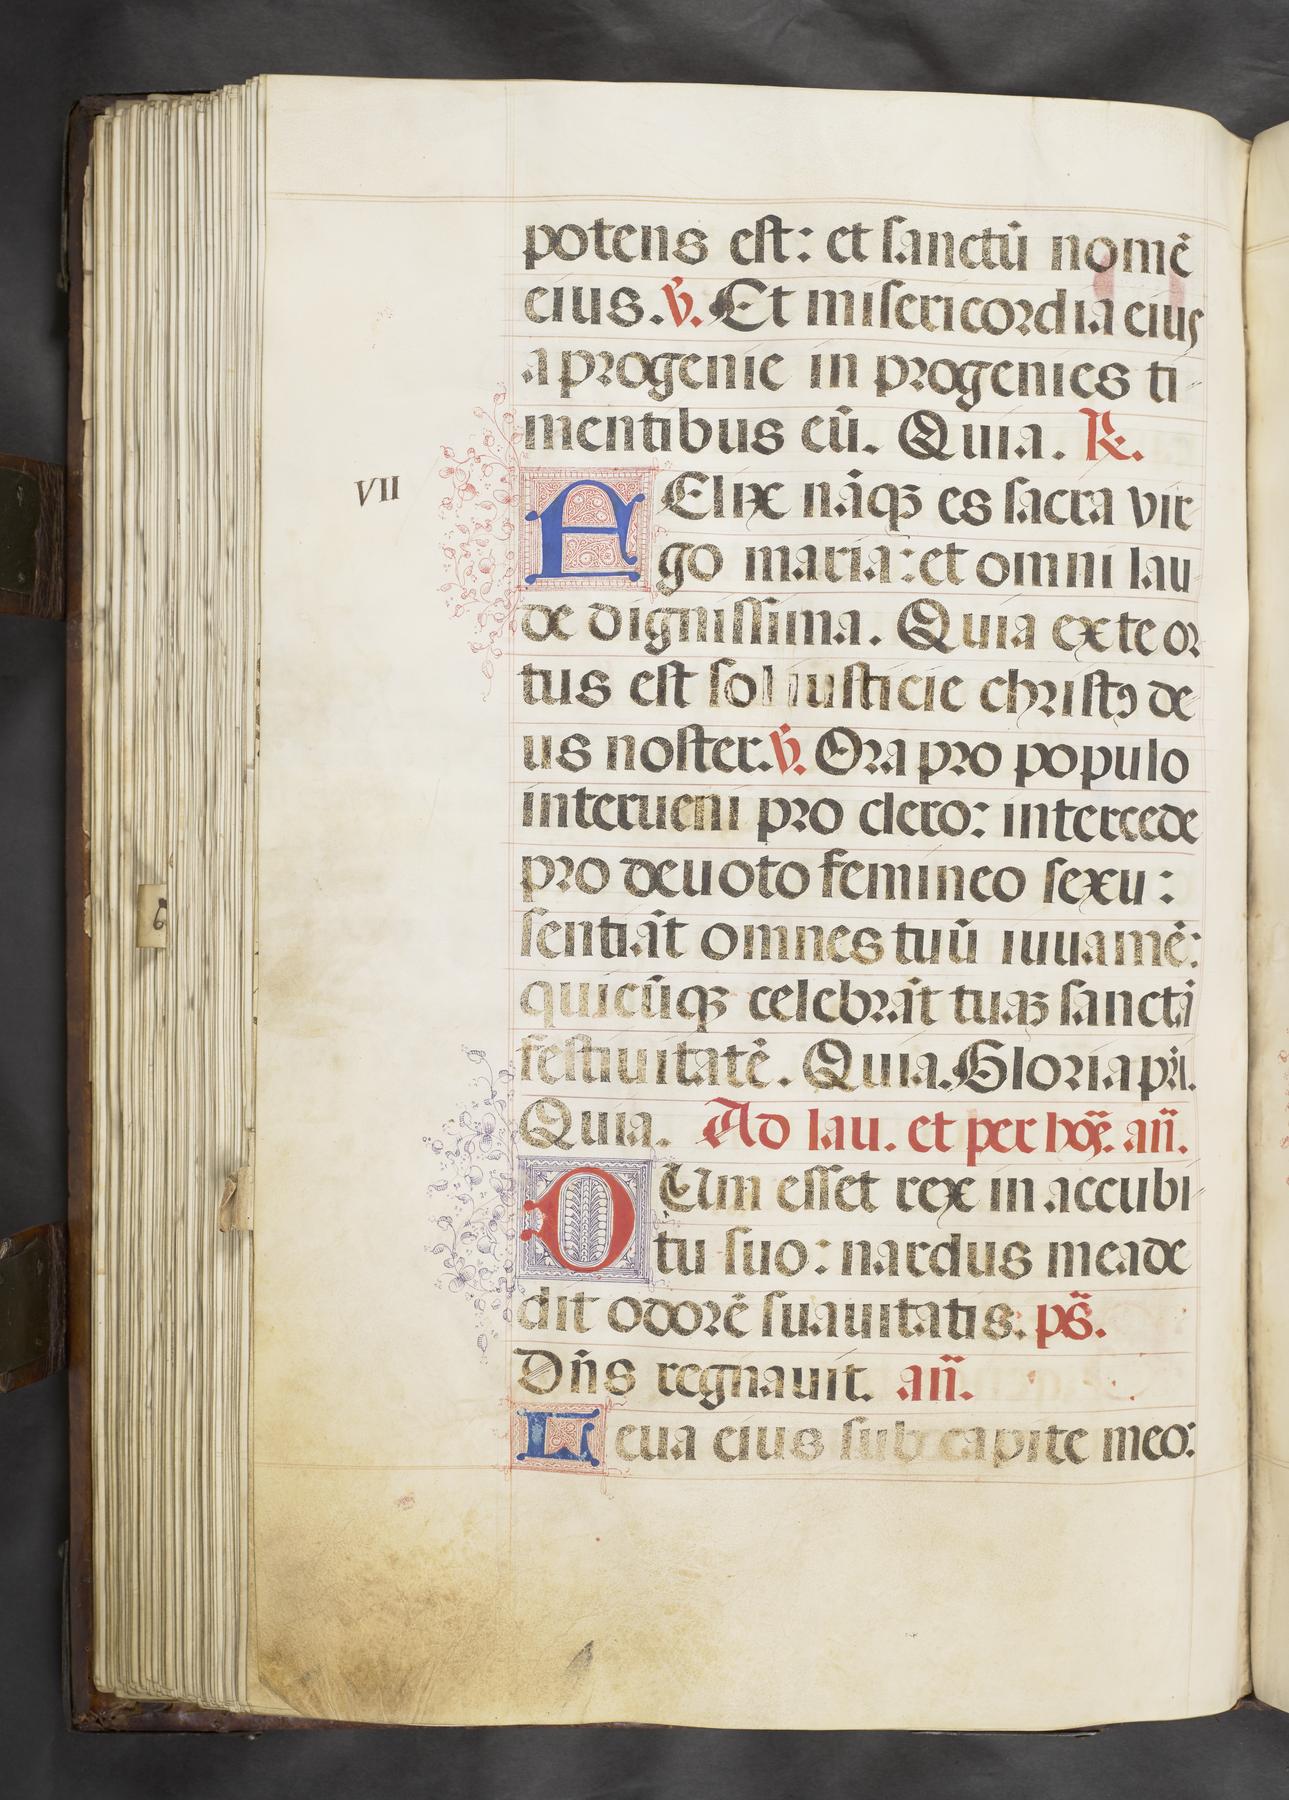 potens est: et sanctū nomē
eius. ℣. Et misericordia eius
a progenie in progenies ti
mentibus eū. Quia. ℟.
VII
FElix nāqȝ es sacra vir
go maria: et omni lau
de dignissima. Quia ex te or
tus est sol iusticie christꝰ de
us noster. ℣. Ora pro populo
interueni pro clero: intercede
pro deuoto femineo sexu:
sentiāt omnes tuū iuuamē:
quicūqȝ celebrāt tuaȝ sanctā
festiuitatē. Quia. Gloria pr̄i.
Quia. Ad lau. et per hoꝝ. añ.
DUm esset rex in accubi
tu suo: nardus mea de
dit odorē suauitatis. ps̄.
Dñs regnauit. añ.
Leua eius sub capite meo: